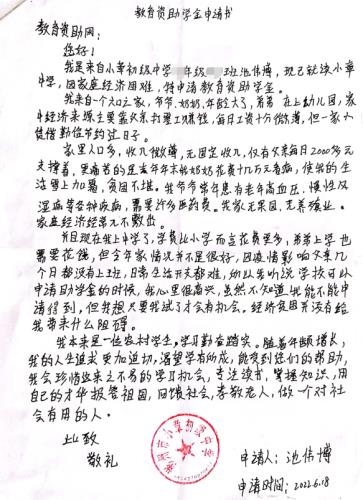 教育资助学金申请书
教育资助网：
您好！
我是来自小章初级中学 年级 班池伟博，现已就读小章
中学，因家庭经济困难，特申请教育资助学金。
我来自一个 口之家，爷爷、奶奶年龄大了，弟弟在上幼儿园，家
中经济来源主要靠父亲打零工赚钱，每日工资十分微薄，但一家人
凭借勤俭节约过日子。
家里人口多，收入微薄，无固定收入，仅有父亲每月2000多元
支撑着，更痛苦的是去年年末给奶奶花费十几万元看病，使我的生
活雪上加霜，贫困不堪。我爷爷常年患有老年高血压、慢性及
湿病等各种疾病，需要许多医药费。我家无果园，无养殖业。
家庭经济经常入不敷出。
并且现在我上中学了，学费比小学而言花费更多，弟弟上学也
需要花钱，但今年家情况并不是很好，因疫情影响父亲几
个月都没有上班，日常生活开支都难，所以我听说学校可以
申请助学金的时候，我心里很高兴，虽然不知道我能不能申
请得到，但我想只要我试了才会有机会。经济贫困并没有给
我带来什么阻碍。
我本来是一位农村学生，学习勤奋踏实。随着年龄增长，
我的人生追求更加迫切，渴望学有所成，能受到您们的帮助，
我会珍惜这来之不易的学习机会，专注读书，掌握知识，用
自己的才华报答祖国，回馈社会，孝敬老人，做一个对社
会有用的人。
此致
敬礼
申请人：池伟博
申请时间：2022.6.18